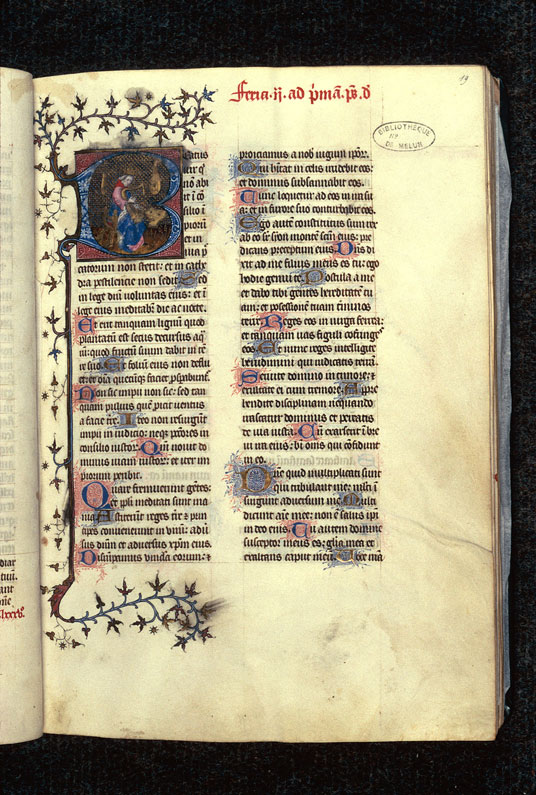 Feria .ij. ad p̄mā. ps. d
19
BIBLIOTHEQUE
DE MELUN
B eatus
vir q̄
nō abi
it ī cō
silio ī
piorū
et in
uia p̄
catorum non stetit: et in cath
dra pestilencie non sedit. Sed
in lege dn̄i uoluntas eius: et ī
lege eius meditabit̄ die ac nocte.
Et erit tanquam lignū quod
plantatū est secus decursus aq̄
ꝝ: quod fructū suum dabit in tē
pe suo. Et folium eius non deflu
et: et oīa quecūq̄ faciet p̄sperabunt̄.
Non sic impii non sic: sed tan
quam puluis quē proicit uentus
a facie tr̄e. Ideo non resurgūt
impii in iudicio: neq̄ pc̄cōres in
consilio iustoꝝ. Qm̄ nouit do
minus uiam iustoꝝ: et iter im
piorum peribit.
Quare fremuerunt gētes:
et ppli meditati sunt ina
nia. Astiterūt reges tr̄e ⁊ prin
cipes conuenerunt in vnū: adū
sus dn̄m et aduersus xp̄m eius.
Disrumpamus vincla eorum: ⁊
proiciamus a nob̄ iugum ip̄oꝝ.
Qui hītat in celis irridebit eos:
et dominus subsannabit eos.
Tunc loquetur ad eos in ira su
a: et in furore suo conturbabit eos.
Ego autē constitutus sum rex
ab eo sr̄ syon montē scm̄ eius: pre
dicans preceptum eius. Dn̄s di
xit ad me filius meus es tu: ego
hodie genui te. Postula a me
et dabo tibi gentes hereditatē tu
am: et possessionē tuam tīminos
terre. Reges eos in uirga ferrea:
et tanquam uas figuli cōfringes
eos. Et nunc reges intelligite:
erudimini qui iudicatis terrā.
Seruite domino in timore: ⁊
exultate ei cum tremore. Appre
hendite disciplinam nequando
irascatur dominus et pereatis
de uia iusta. Cū exarserit ī bre
ui ira eius: bt̄i omīs qui cōfidunt
in eo.
Dn̄e quid multiplicati sunt
qui tribulant me: multi ī
surgunt aduersum me. Multi
dicunt aīe mee: non ē salus ip̄i
in deo eius. Tu autem domine
susceptor meus es: gl̄ia mea et
exaltans caput meū. Voce mea